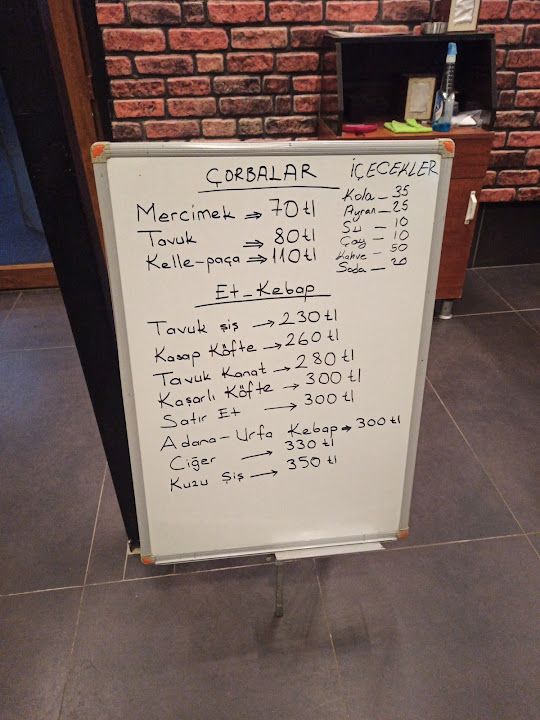 ÇORBALAR
Mercimek ⇒ 70 tl
Tavuk ⇒ 80 tl
Kelle-paça ⇒ 110 tl
İÇECEKLER
Kola - 35
Ayran - 25
Su - 10
Çay - 10
Kahve - 50
Soda - 20
Et-Kebap
Tavuk şiş → 230 tl
Kasap Köfte → 260 tl
Tavuk Kanat → 280 tl
Kaşarlı Köfte → 300 tl
Satır Et → 300 tl
Adana-Urfa Kebap → 300 tl
Ciğer → 330 tl
Kuzu Şiş → 350 tl